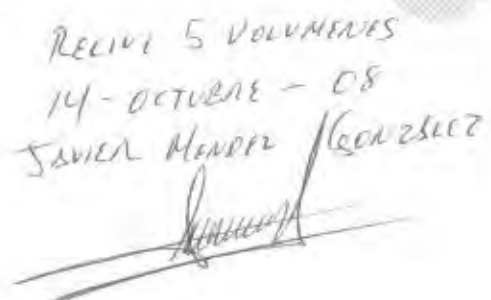 RECIVI 5 VOLUMENES
14-OCTUBRE-08
JAVIER MENDEZ GONZALEZ